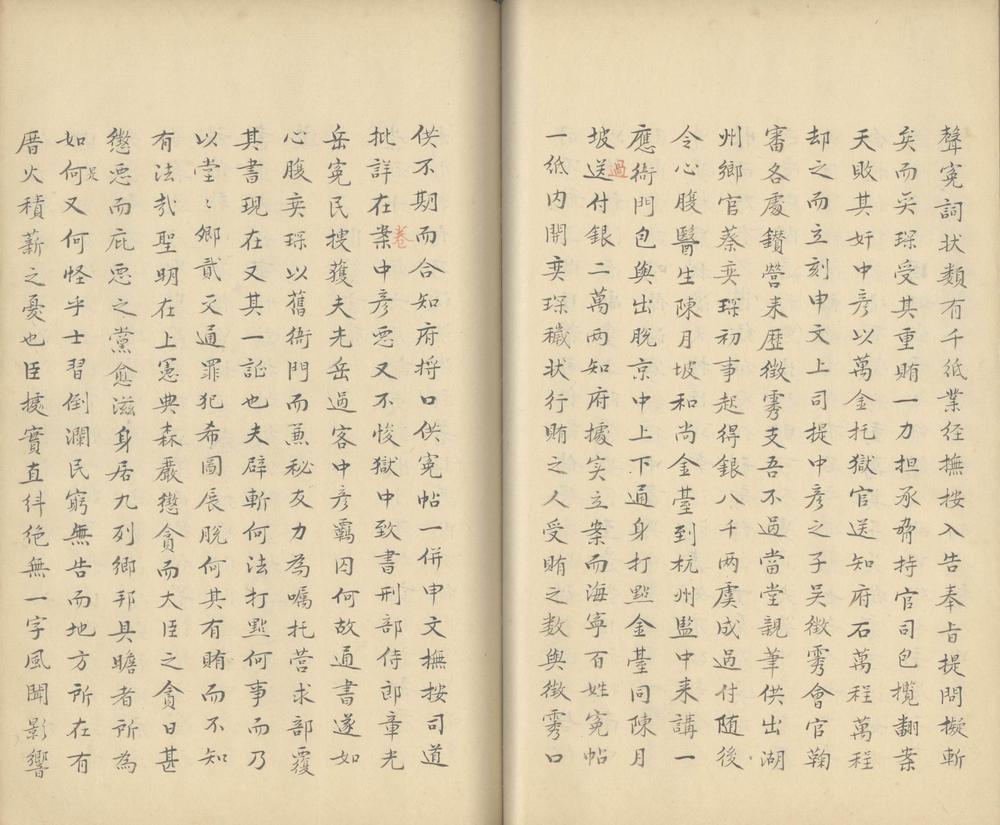 聲寃詞狀類有千紙業经撫按入告奉㫖提問擬斬
矣而奕琛受其重賄一力担承脅持官司包攬翻案
天敗其奸中彦以萬金托獄官送知府石萬程萬程
却之而立刻申文上司提中彦之子吴徵雱會官鞠
審各處鑚營来歷徵雱支吾不過當堂親筆供出湖
州鄉官蔡奕琛初事起得銀八千两虞成過付随後
令心腹醫生陳月坡和尚金䑓到杭州監中来講一
應衙門包與出脱京中上下通身打㸃金䑓同陳月
坡送過付銀二萬两知府據实立案而海寧百姓寃帖
一紙内開奕琛穢状行賄之人受賄之数與徵雱口
供不期而合知府将口供寃帖一併申文撫按司道
批詳在案卷中彦惡又不悛獄中致書刑部侍郎章光
岳寃民搜獲夫光岳過客中彦羈囚何故通書遂如
心腹奕琛以舊衙門而兼秘友力為嘱托营求部覆
其書現在又其一証也夫辟斬何法打㸃何事而乃
以堂〻鄉貳文通罪犯希圖展脱何其有賄而不知
有法㢤聖明在上憲典森嚴懲貪而大臣之貪日甚
懲惡而庇惡之黨愈滋身居九列鄉邦具瞻者所為
如何是又何怪乎士習倒瀾民窮無告而地方所在有
厝火積薪之憂也臣據實直糾绝無一字風聞影響